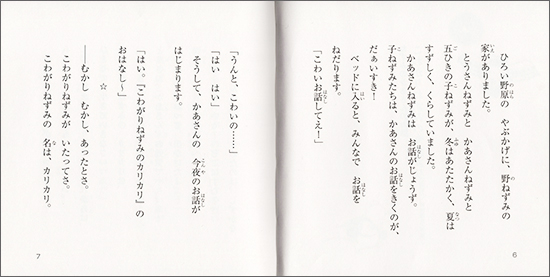 ひろい野原の　やぶかげに、野ねずみの
家がありました。
とうさんねずみと　かあさんねずみと
五ひきの子ねずみが、冬はあたたかく、夏は
すずしく、くらしていました。
かあさんねずみは　お話がじょうず。
子ねずみたちは、かあさんのお話をきくのが、
だぁいすき！
ベッドに入ると、みんなで　お話を
ねだります。
「こわいお話してえ！」
6
「うんと、こわいの……」
「はい　はい」
そうして、かあさんの　今夜のお話が
はじまります。
「はい。『こわがりねずみのカリカリ』の
おはなし～」
☆
――むかし　むかし、あったとさ。
こわがりねずみが　いたってさ。
こわがりねずみの　名は、カリカリ。
7